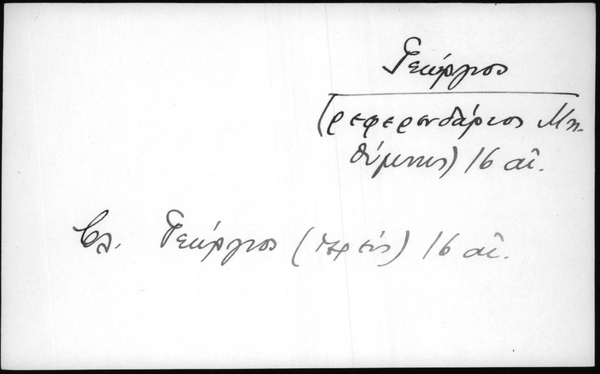 Γεώργιος
(ρεφερενδάριος Μη-
θύμνης) 16 αἰ.
Βλ. Γεώργιος (ἱερεύς) 16 αἰ.